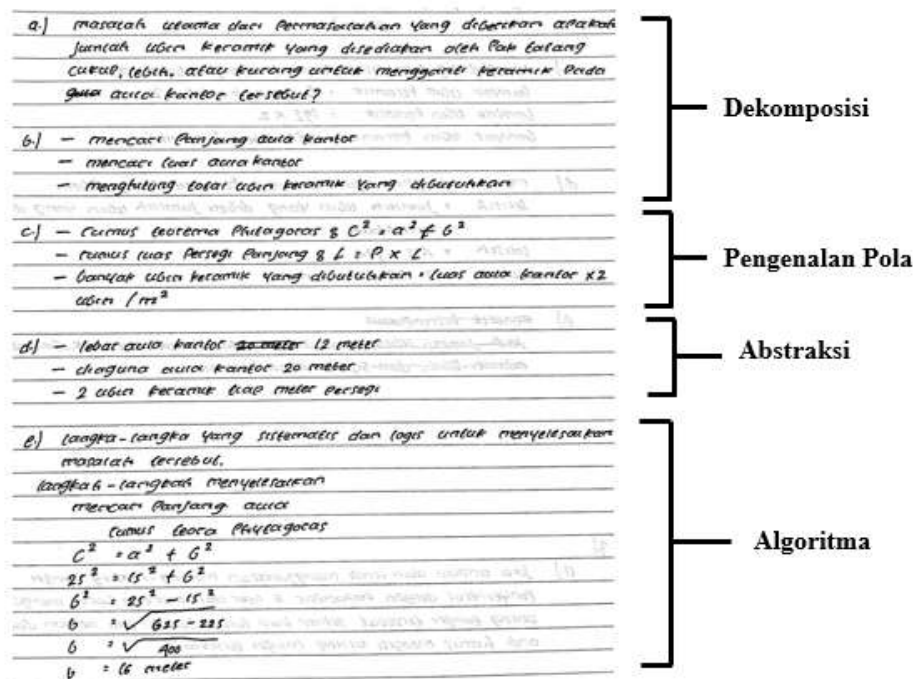 a.) masalah utama dari Permasalahan Yang diberikan apakah
Jumlah ubin keramik Yang disediakan oleh Pak Galang
cukup, lebih, atau kurang untuk mengganti keramik Pada
aula kantor tersebut?
b.) - mencari Panjang aula kantor
- mencari luas aula kantor
- menghitung total ubin keramik Yang dibutuhkan
Dekomposisi
c.) - rumus teorema Phitagoras : C² = a² + b²
- rumus luas Persegi Panjang : L = P x L
- banyak ubin keramik yang dibutuhkan = luas aula kantor x2
ubin / m²
Pengenalan Pola
d.) - lebar aula kantor 20 meter 12 meter
- diagonal aula kantor 20 meter
- 2 ubin keramik tiap meter Persegi
Abstraksi
e.) langka-langka Yang sistematis dan logis untuk menyelesaikan
masalah tersebut.
langkah-langkah menyelesaikan
mencari Panjang aula
rumus teora Phytagoras
C² = a² + b²
25² = 15² + b²
b² = 25² - 15²
b = √625 - 225
b = √400
b = 16 meter
Algoritma